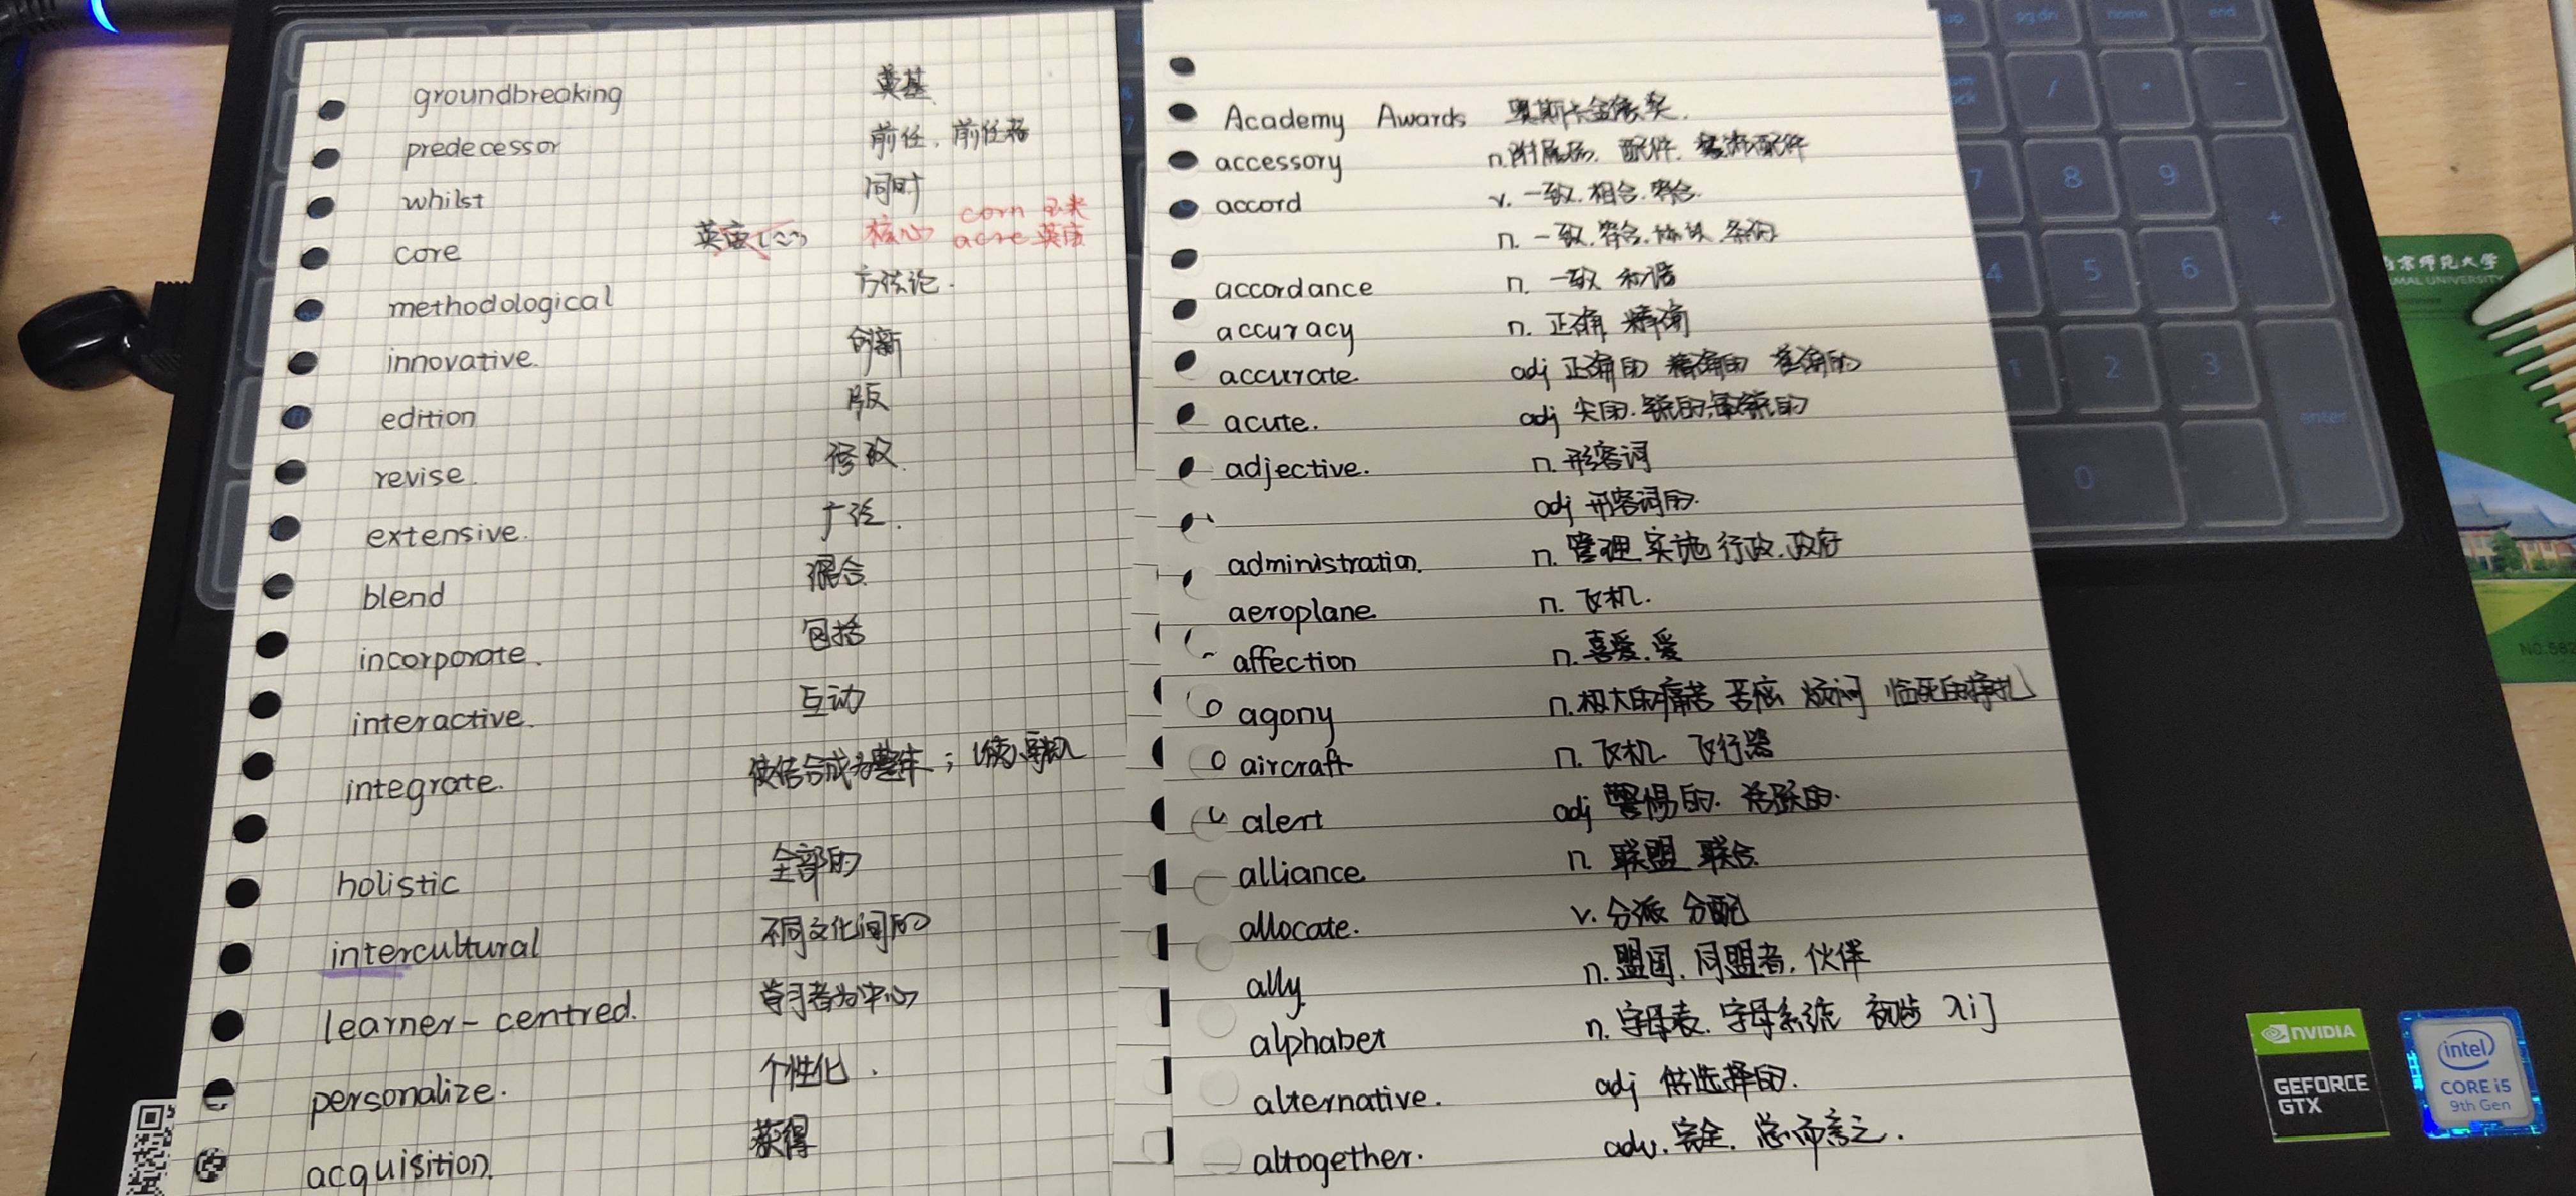 groundbreaking 奠基
predecessor 前任，前任者
whilst 同时
corn 玉米
core 英亩 核心 acre 英亩
methodological 方法论.
innovative. 创新
edition 版
revise. 修改.
extensive. 广泛.
blend 混合.
incorporate. 包括
interactive. 互动
integrate. 使结合成为整体；
holistic 全部的
intercultural 不同文化间的
learner-centred. 学习者为中心
personalize. 个性化.
acquisition. 获得
Academy Awards 奥斯卡金像奖.
accessory n.附属品. 配件.
accord v. 一致.相合.符合.
n. 一致.符合.协议.条约
accordance n. 一致 和谐
accuracy n. 正确 精确
accurate. adj 正确的 精确的 准确的
acute. adj 尖的.锐的.敏锐的
adjective. n. 形容词
adj 形容词的.
administration. n. 管理 实施 行政.政府
aeroplane n. 飞机.
affection n. 喜爱.爱
agony n.极大的痛苦 苦恼 烦闷 临死的挣扎
aircraft n. 飞机 飞行器
alert adj 警惕的. 活跃的.
alliance n. 联盟 联合.
allocate. v. 分派 分配
ally n. 盟国. 同盟者. 伙伴
alphabet n. 字母表. 字母系统 初步 入门
alternative. adj 供选择的.
altogether. adv. 完全. 总而言之.
up pg dn home end
7 8 9
4 5 6
1 2 3
enter
0
京师范大学
MAL UNIVERSITY
NO.582
NVIDIA
GEFORCE
GTX
intel
CORE i5
9th Gen